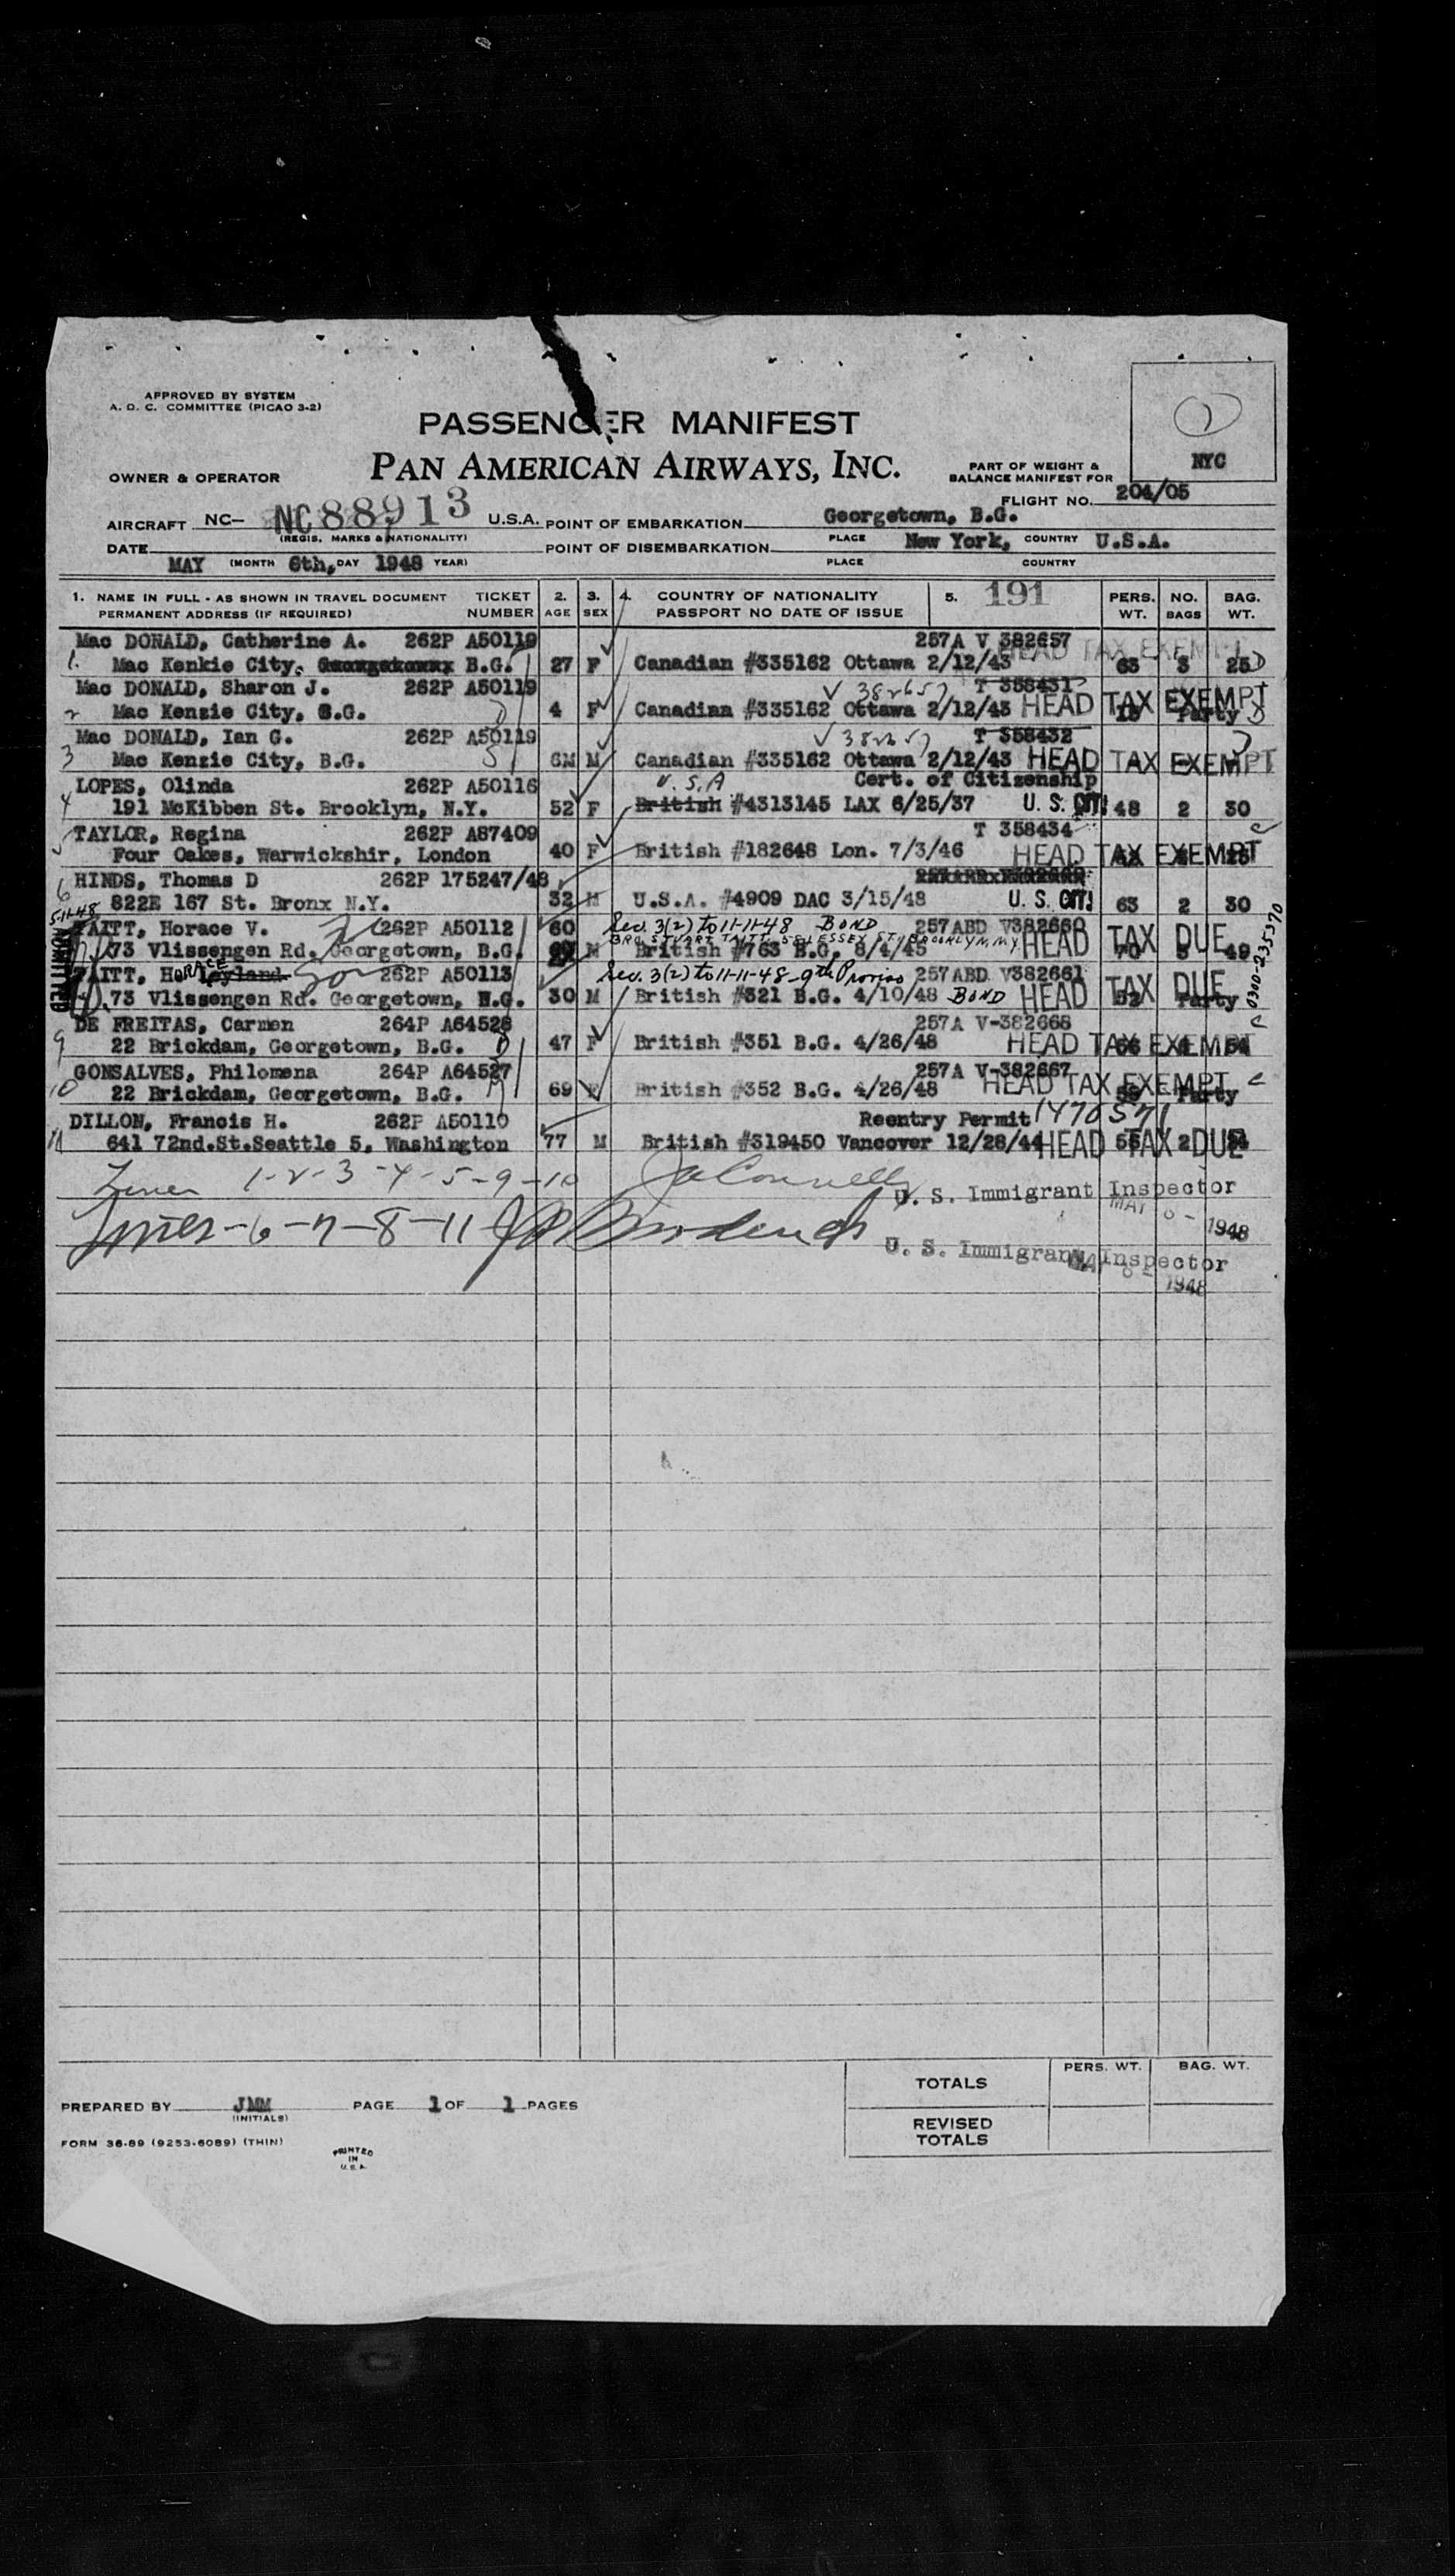 APPROVED BY SYSTEM
A. D. C. COMMITTEE (PICAO 3-2)
PASSENGER MANIFEST
OWNER & OPERATOR PAN AMERICAN AIRWAYS, INC.
PART OF WEIGHT &
BALANCE MANIFEST FOR
NYC
FLIGHT NO. 204/05
AIRCRAFT NC- NC88913 U.S.A. POINT OF EMBARKATION Georgetown, B.G.
(REGIS. MARKS & NATIONALITY) PLACE COUNTRY
DATE MAY (MONTH 6th, DAY 1948 YEAR) POINT OF DISEMBARKATION New York, U.S.A.
PLACE COUNTRY
1. NAME IN FULL - AS SHOWN IN TRAVEL DOCUMENT TICKET 2. 3. 4. COUNTRY OF NATIONALITY 5. 191 PERS. NO. BAG.
PERMANENT ADDRESS (IF REQUIRED) NUMBER AGE SEX PASSPORT NO DATE OF ISSUE WT. BAGS WT.
Mac DONALD, Catherine A. 262P A50119 257A V 382657 HEAD TAX EXEMPT
1. Mac Kenkie City, B.G. 27 F Canadian #335162 Ottawa 2/12/43 63 3 25
Mac DONALD, Sharon J. 262P A50119 V 382657 T 358431
2 Mac Kenzie City, B.G. 4 F Canadian #335162 Ottawa 2/12/43 HEAD TAX EXEMPT Party
Mac DONALD, Ian G. 262P A50119 V 382657 T 358432
3 Mac Kenzie City, B.G. 6M M Canadian #335162 Ottawa 2/12/43 HEAD TAX EXEMPT
LOPES, Olinda 262P A50116 U.S.A Cert. of Citizenship
4 191 McKibben St. Brooklyn, N.Y. 52 F British #4313145 LAX 6/25/37 U. S. CIT. 48 2 30
TAYLOR, Regina 262P A87409 T 358434
5 Four Oakes, Warwickshir, London 40 F British #182648 Lon. 7/3/46 HEAD TAX EXEMPT
HINDS, Thomas D 262P 175247/48
6 822E 167 St. Bronx N.Y. 32 M U.S.A. #4909 DAC 3/15/48 U. S. CIT. 63 2 30
5-11-48 ADMITTED
TAITT, Horace V. 262P A50112 60 Sec. 3(2) to 11-11-48 BOND 257ABD V382660
BRO. STUART TAITT ESSEX ST, BROOKLYN, N.Y.
73 Vlissengen Rd. Georgetown, B.G. M British #763 B.G. 8/4/45 HEAD TAX DUE 70 49
TAITT, HORACE Leyland Son 262P A50113 Sec. 3(2) to 11-11-48 - 9th Proviso 257ABD V382661
73 Vlissengen Rd. Georgetown, B.G. 30 M British #321 B.G. 4/10/48 BOND HEAD TAX DUE 52 Party
0300-235370
DE FREITAS, Carmen 264P A64528 257A V-382668
9 22 Brickdam, Georgetown, B.G. 47 F British #351 B.G. 4/26/48 HEAD TAX EXEMPT
GONSALVES, Philomena 264P A64527 257A V-382667
10 22 Brickdam, Georgetown, B.G. 69 F British #352 B.G. 4/26/48 HEAD TAX EXEMPT Party
DILLON, Francis H. 262P A50110 Reentry Permit 1470571
11 641 72nd.St.Seattle 5, Washington 77 M British #319450 Vancover 12/28/44 HEAD TAX DUE
Lines 1-2-3-4-5-9-10
U. S. Immigrant Inspector
MAY 6 - 1948
Lines-6-7-8-11
U. S. Immigrant Inspector
MAY 6 - 1948
PERS. WT. BAG. WT.
TOTALS
PREPARED BY JMM PAGE 1 OF 1 PAGES
(INITIALS)
REVISED
TOTALS
FORM 36-89 (9253-6089) (THIN)
PRINTED
IN
U. S. A.